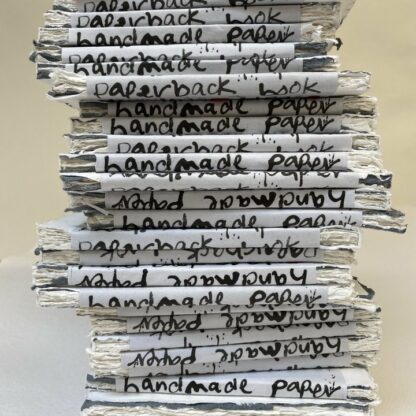 paperback book
handmade paper
paperback book
handmade paper
paperback book
handmade paper
handmade paper
paperback book
handmade paper
paperback book
handmade paper
handmade paper
paperback book
handmade paper
handmade paper
handmade paper
handmade paper
handmade paper
handmade paper
handmade paper